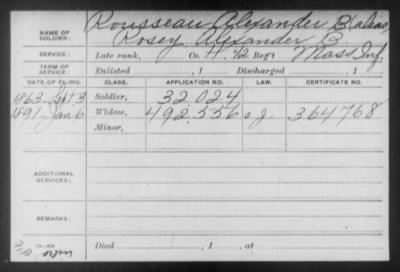 NAME OF SOLDIER: Rousseau Alexander B (alias)
Rosey Alexander B.
SERVICE: Late rank, Co. H. 42 Reg't Mass Inf.
TERM OF SERVICE: Enlisted , 1 Discharged , 1
DATE OF FILING. CLASS. APPLICATION NO. LAW. CERTIFICATE NO.
1863 Sept 3 Soldier, 32.024
1891 Jan 6 Widow, 492.556 o. J. 364768.
Minor,
ADDITIONAL SERVICES:
REMARKS:
Died , 1 , at